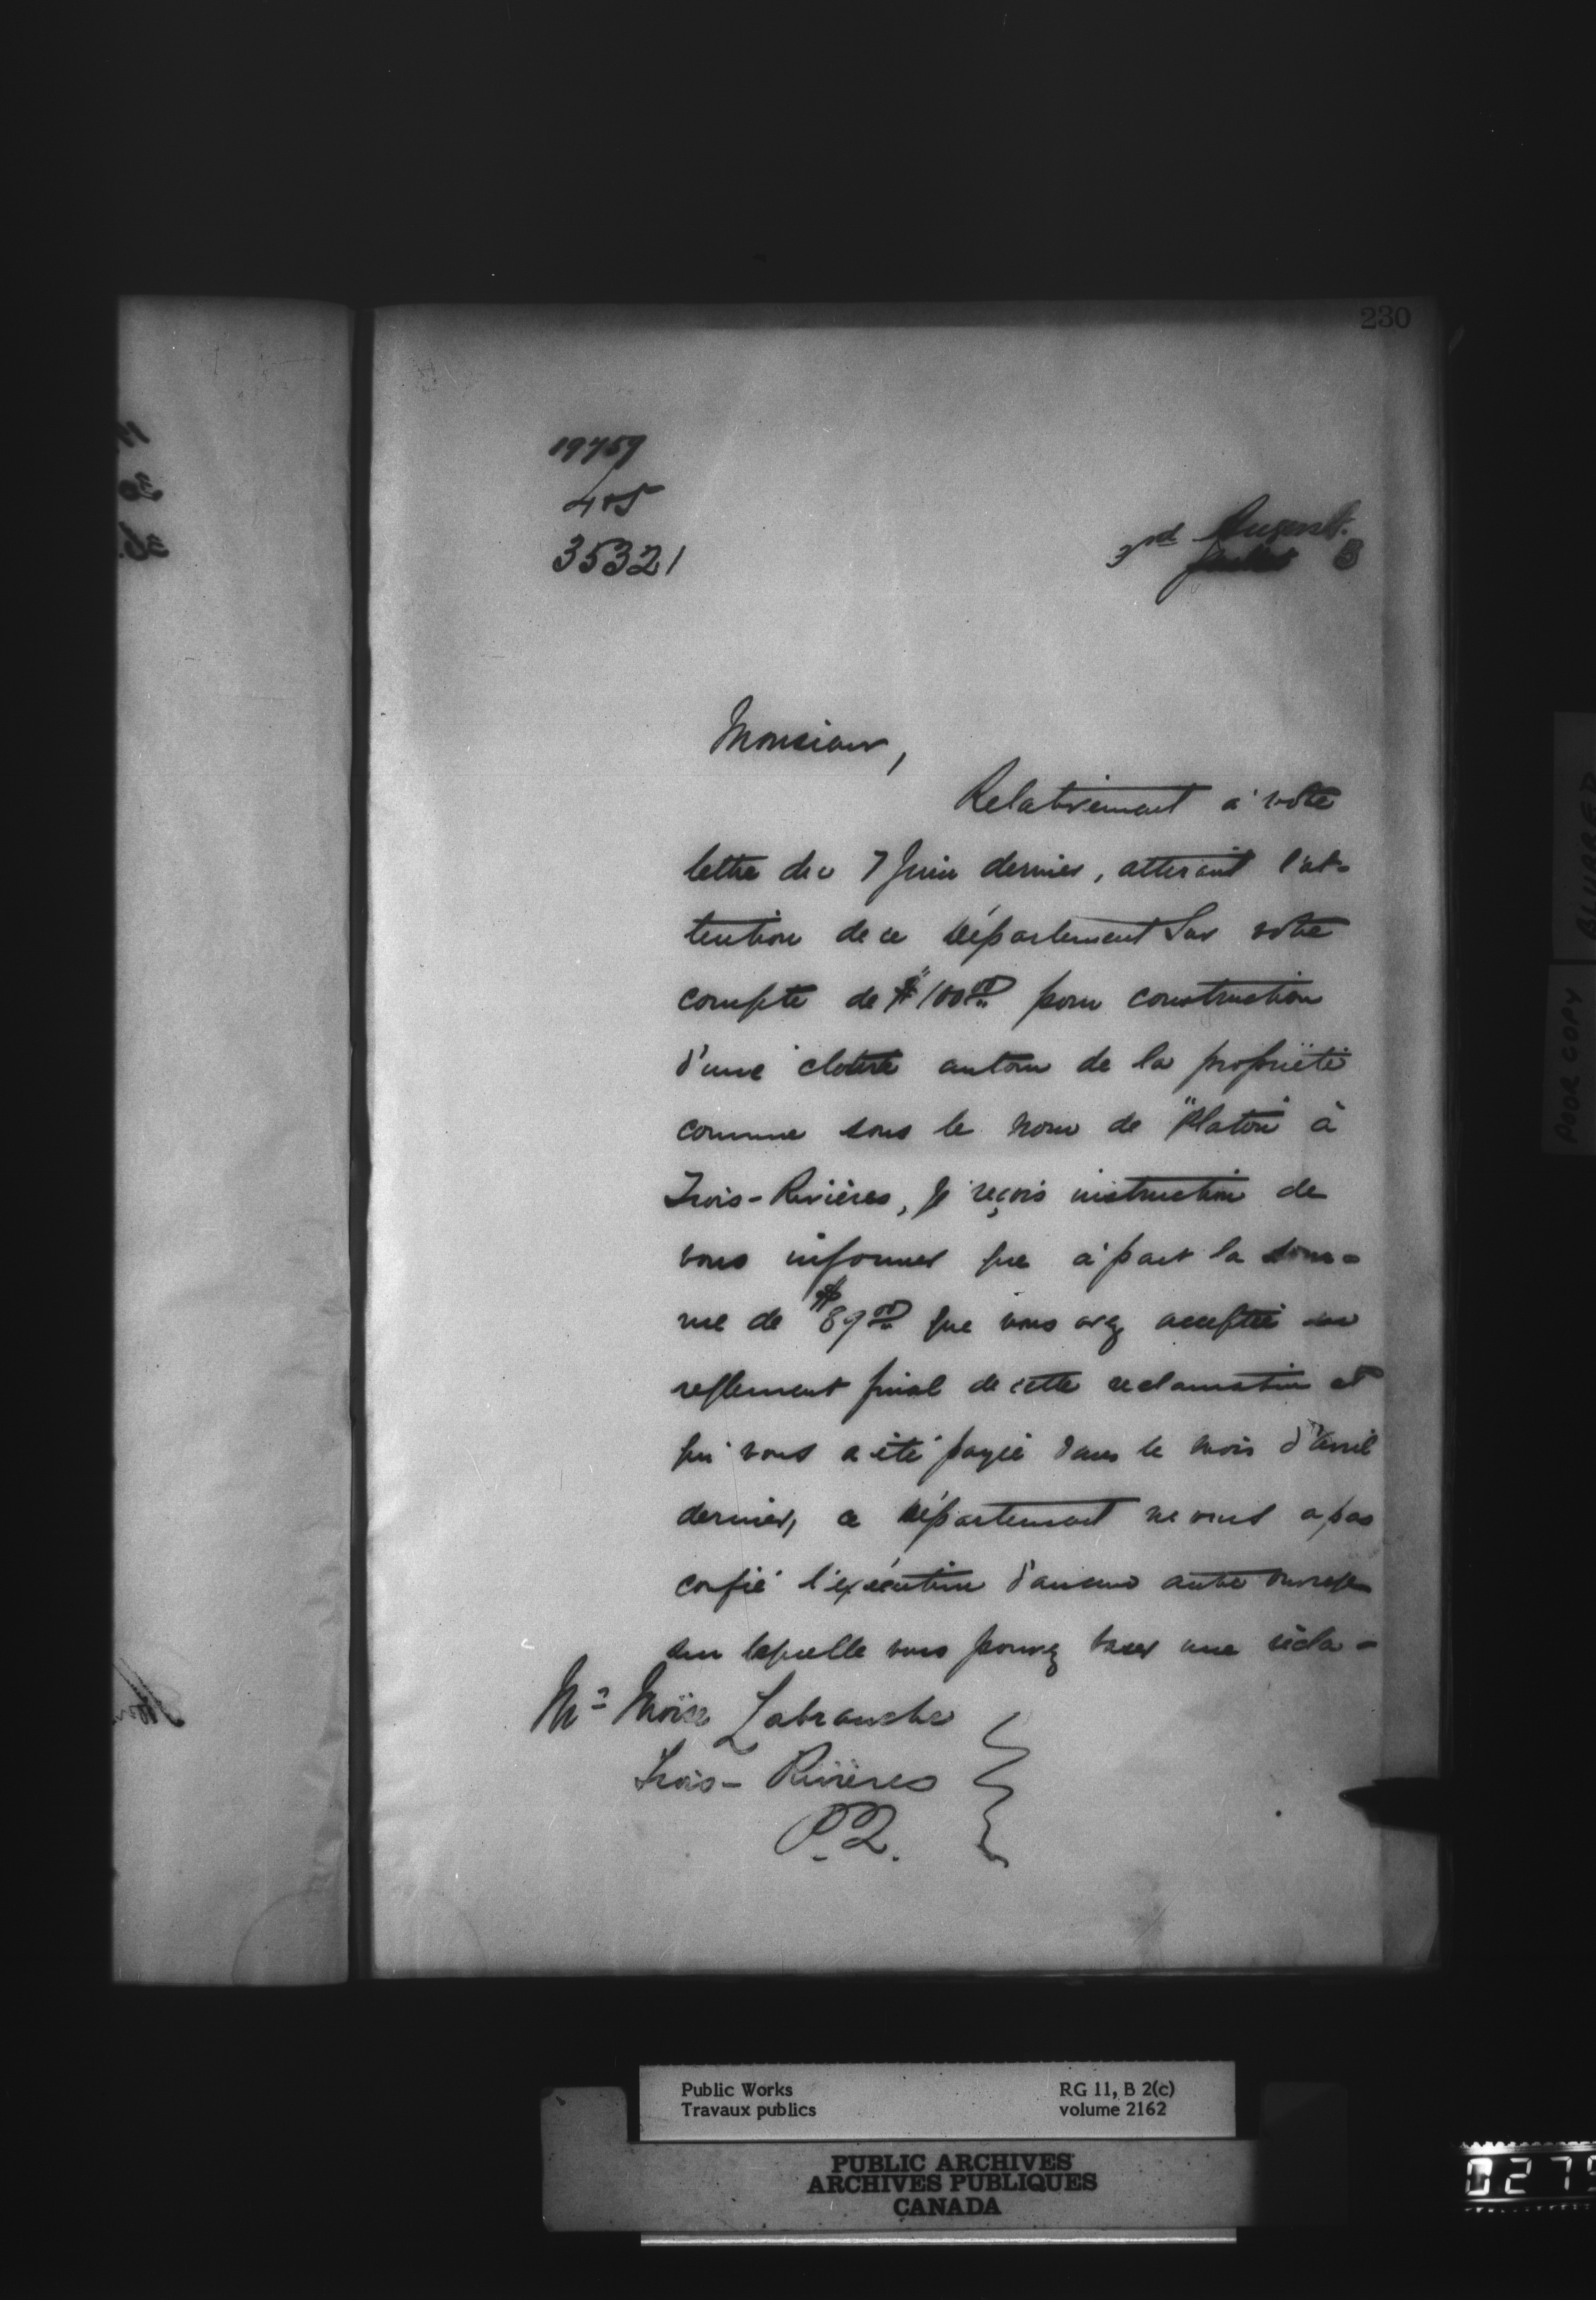 230
19759
405
35321
3rd August
3
Monsieur,
Relativement à votre
lettre du 7 Juin dernier, attirant l'at-
tention de ce département sur votre
compte de $100.00 pour construction
d'une cloture autour de la propriété
connue sous le nom de "Platon" à
Trois-Rivières, je reçois instruction de
vous informer que à part la som-
me de $89.00 que vous avez acceptée en
reglement final de cette reclamation et
qui vous a été payée dans le mois d'avril
dernier, ce département ne vous a pas
confié l'exécution d'aucun autre ouvrage
sur lequelle vous pouvez baser une récla-
Mr Moïse Labranche
Trois-Rivières
P.Q.
BLURRED
POOR COPY
Public Works
Travaux publics
RG 11, B 2(c)
volume 2162
PUBLIC ARCHIVES
ARCHIVES PUBLIQUES
CANADA
0275